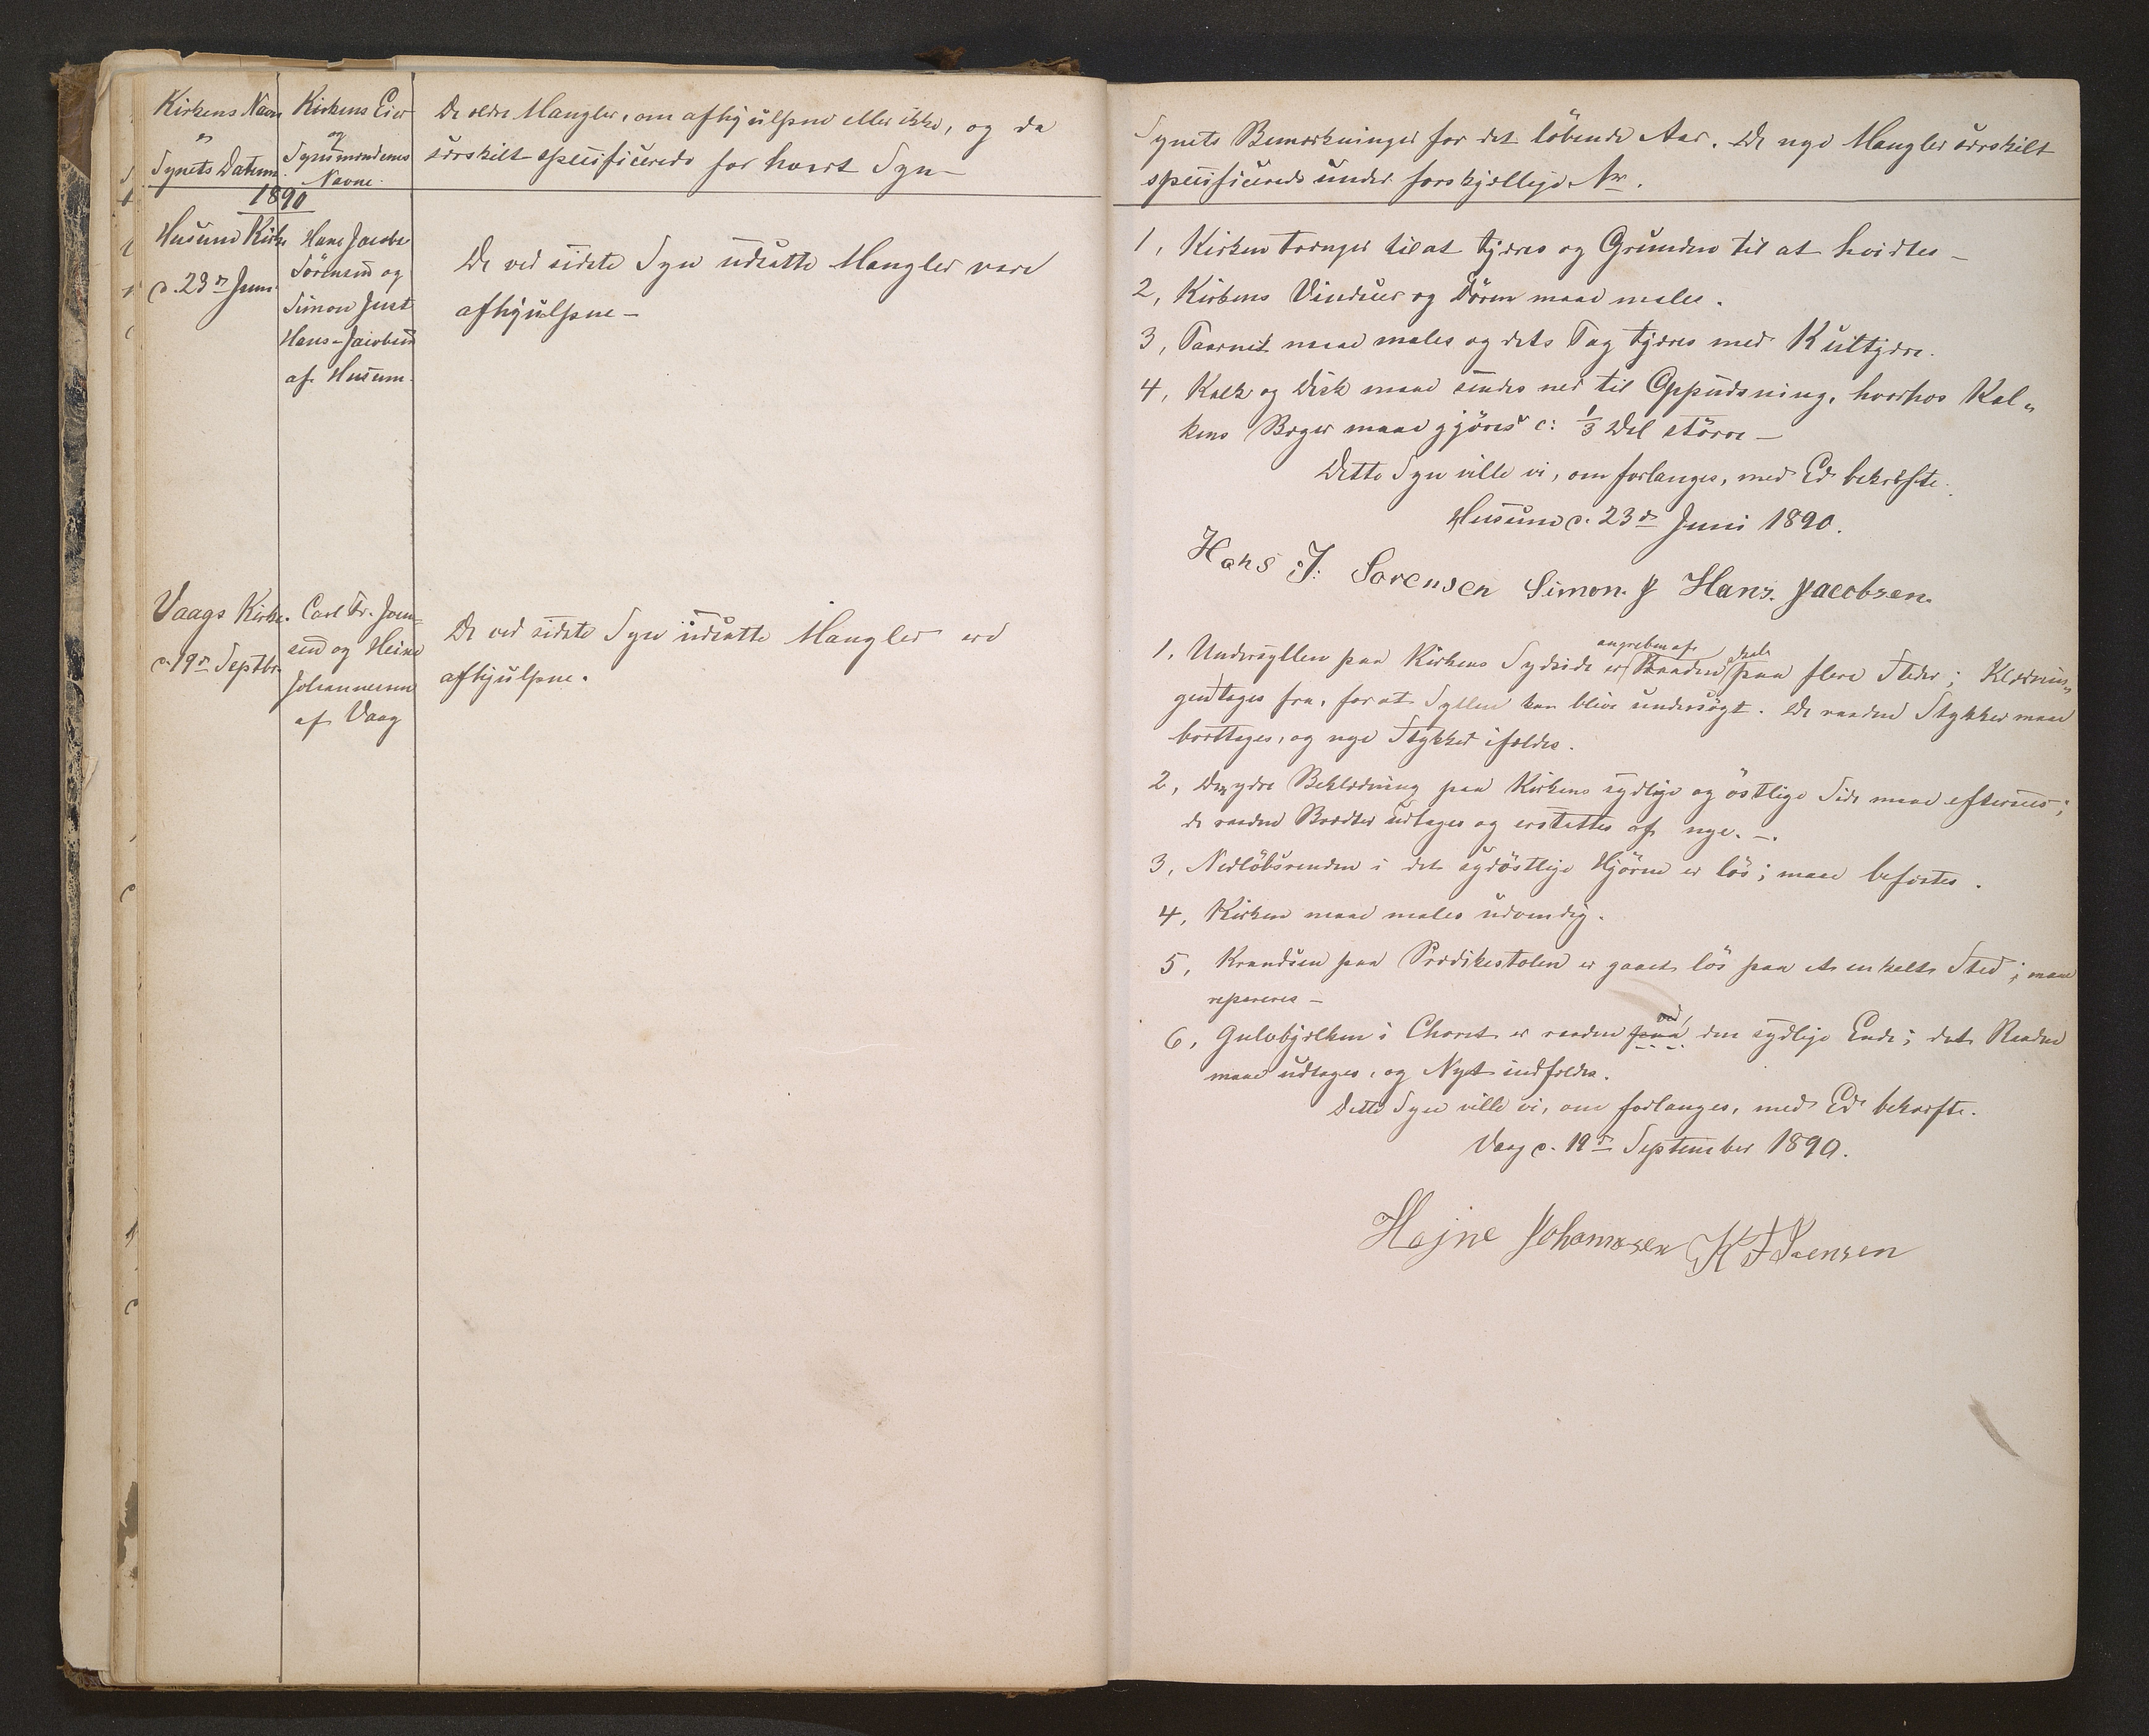 Kirkens Navn
og
Synets Datum.
Kirkens Eier
og
Synsmændenes
Navne.
De ældre Mangler, om afhjulpne eller ikke, og da
særskilt specificerede for hvert Syn –
1890
Husum Kirke
d. 23de Juni
Hans Jacob
Sörensen og
Simon Just
Hans-Jacobsen
af Husum.
De ved sidste Syn udsatte Mangler vare
afhjulpne –
Vaags Kirke.
d. 19de Septbr.
Carl Fr. Joen-
sen og Heine
Johannesen
af Vaag
De ved sidste Syn udsatte Mangler ere
afhjulpne.
Synets Bemærkninger for det löbende Aar. De nye Mangler særskilt
specificerede under forskjellige Nr.
1, Kirken trænger til at tjæres og Grunden til at hvidtes –
2, Kirkens Vinduer og Dören maae males.
3, Taarnet maae males og dets Tag tjæres med Kultjære.
4, Kalk og Disk maae sendes ned til Oppudsning, hvorhos Kal„
kens Bæger maae gjöres c: 1/3 Del större –
Dette Syn ville vi, om forlanges, med Ed bekræfte.
Husum d. 23de Juni 1890.
Hans J. Sorensen Simon. J Hans. Jacobsen.
angreben af
1, Undersyllen paa Kirkens Sydside er Raaden paa flere Steder; Klædnin„
gen tages fra, for at Syllen kan blive undersögt. De raadne Stykker maae
borttages, og nye Stykker ifældes.
2, Den ydre Beklædning paa Kirkens sydlige og östlige Side maae efterses;
de raadne Brædder udtages og erstattes af nye. –.
3, Nedlöbsrenden i det sydöstlige Hjörne er lös; maae befæstes.
4, Kirken maae males udvendig.
5, Krandsen paa Prædikestolen er gaaet lös paa et enkelt Sted; maae
repareres –
ved,
6, Gulvbjælken i Choret er raaden paa den sydlige Ende; det Raadne
maae udtages, og Nyt indfældes.
Dette Syn ville vi, om forlanges, med Ed bekræfte.
Vaag d. 19de September 1890.
Hejne Johannesen K F Joensen